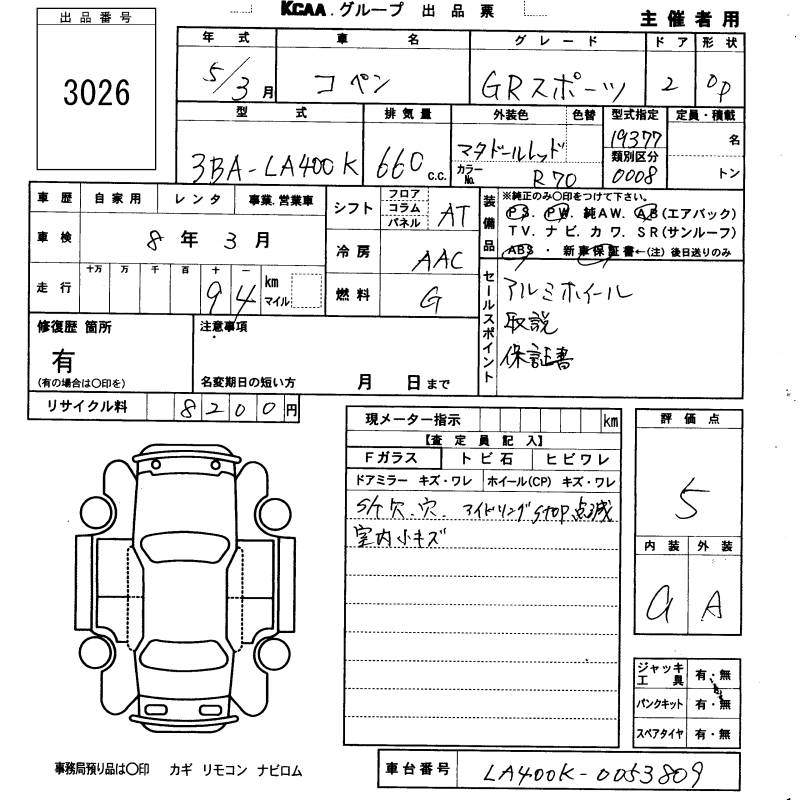 KCAA.グループ 出品票
主催者用
出品番号
3026
年式 車名 グレード ドア 形状
5/3月 コペン GRスポーツ 2 OP
型式 排気量 外装色 色替 型式指定 定員・積載
3BA-LA400K 660 c.c. マタドールレッド 19377 名
カラーNo. R70 類別区分 0008 トン
車歴 自家用 レンタ 事業.営業車
車検 8年3月
走行 十万 万 千 百 十 一 94 km マイル
シフト フロア コラム パネル AT
冷房 AAC
燃料 G
装備品 ※純正のみ〇印をつけて下さい。
PS. PW. 純AW. AB(エアバック)
TV. ナビ. カワ. SR(サンルーフ)
ABS ・ 新車保証書←(注) 後日送りのみ
セールスポイント
アルミホイール
取説
保証書
修復歴 箇所
有
(有の場合は〇印を)
注意事項
名変期日の短い方 月 日まで
リサイクル料 8200円
現メーター指示 km
【査定員記入】
Fガラス トビ石 ヒビワレ
ドアミラー キズ・ワレ ホイール(CP) キズ・ワレ
S/T欠.穴. アイドリングSTOP点滅
室内小キズ
評価点
5
内装 外装
a A
ジャッキ工具 有・無
パンクキット 有・無
スペアタイヤ 有・無
事務局預り品は〇印 カギ リモコン ナビロム
車台番号 LA400K-0053809